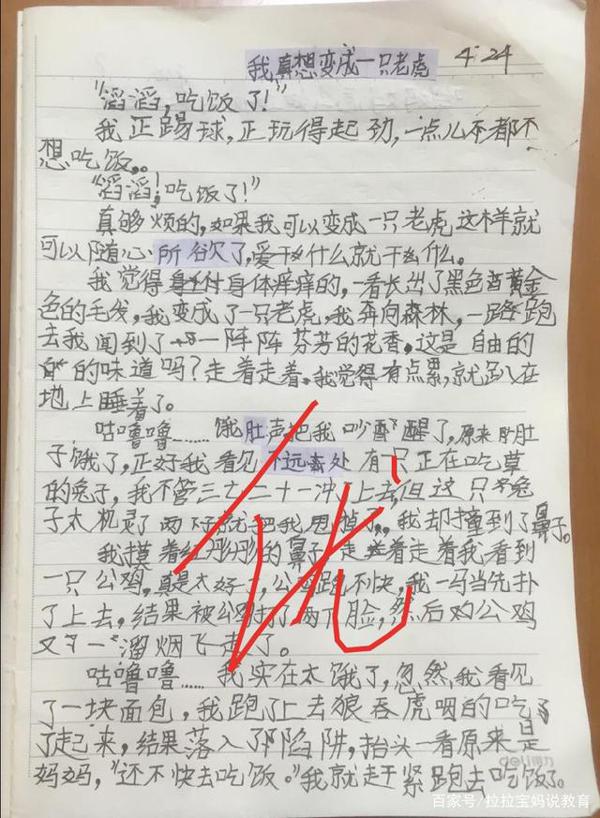 我真想变成一只老虎 4.24
“滔滔,吃饭了!”
我正踢球,正玩得起劲,一点儿不都不
想吃饭。
“滔滔!吃饭了!”
真够烦的,如果我可以变成一只老虎这样就
可以随心所欲了,爱干什么就干什么。
我觉得身体痒痒的,一看长出了黑色黄金
色的毛发,我变成了一只老虎,我奔向森林,一路跑
去我闻到了一阵阵芬芳的花香,这是自由的
的味道吗?走着走着,我觉得有点累,就趴在
地上睡着了。
咕噜噜……饿肚声把我吵醒了,原来肚
子饿了,正好我看见不远处有一只正在吃草
的兔子,我不管三七二十一冲上去,但这只兔
子太机灵了两下就把我甩掉了,我却撞到了鼻子。
我摸着红彤彤的鼻子走着走着我看到
一只公鸡,真是太好了,公鸡跑不快,我一马当先扑
了上去,结果被公鸡打了两下脸,然后公鸡
又一溜烟飞走了。
咕噜噜……我实在太饿了,忽然,我看见
了一块面包,我跑了上去狼吞虎咽的吃
了起来,结果落入了陷阱,抬头一看原来是
妈妈,“还不快去吃饭。”我就赶紧跑去吃饭了。
优
deli得力
百家号/拉拉宝妈说教育